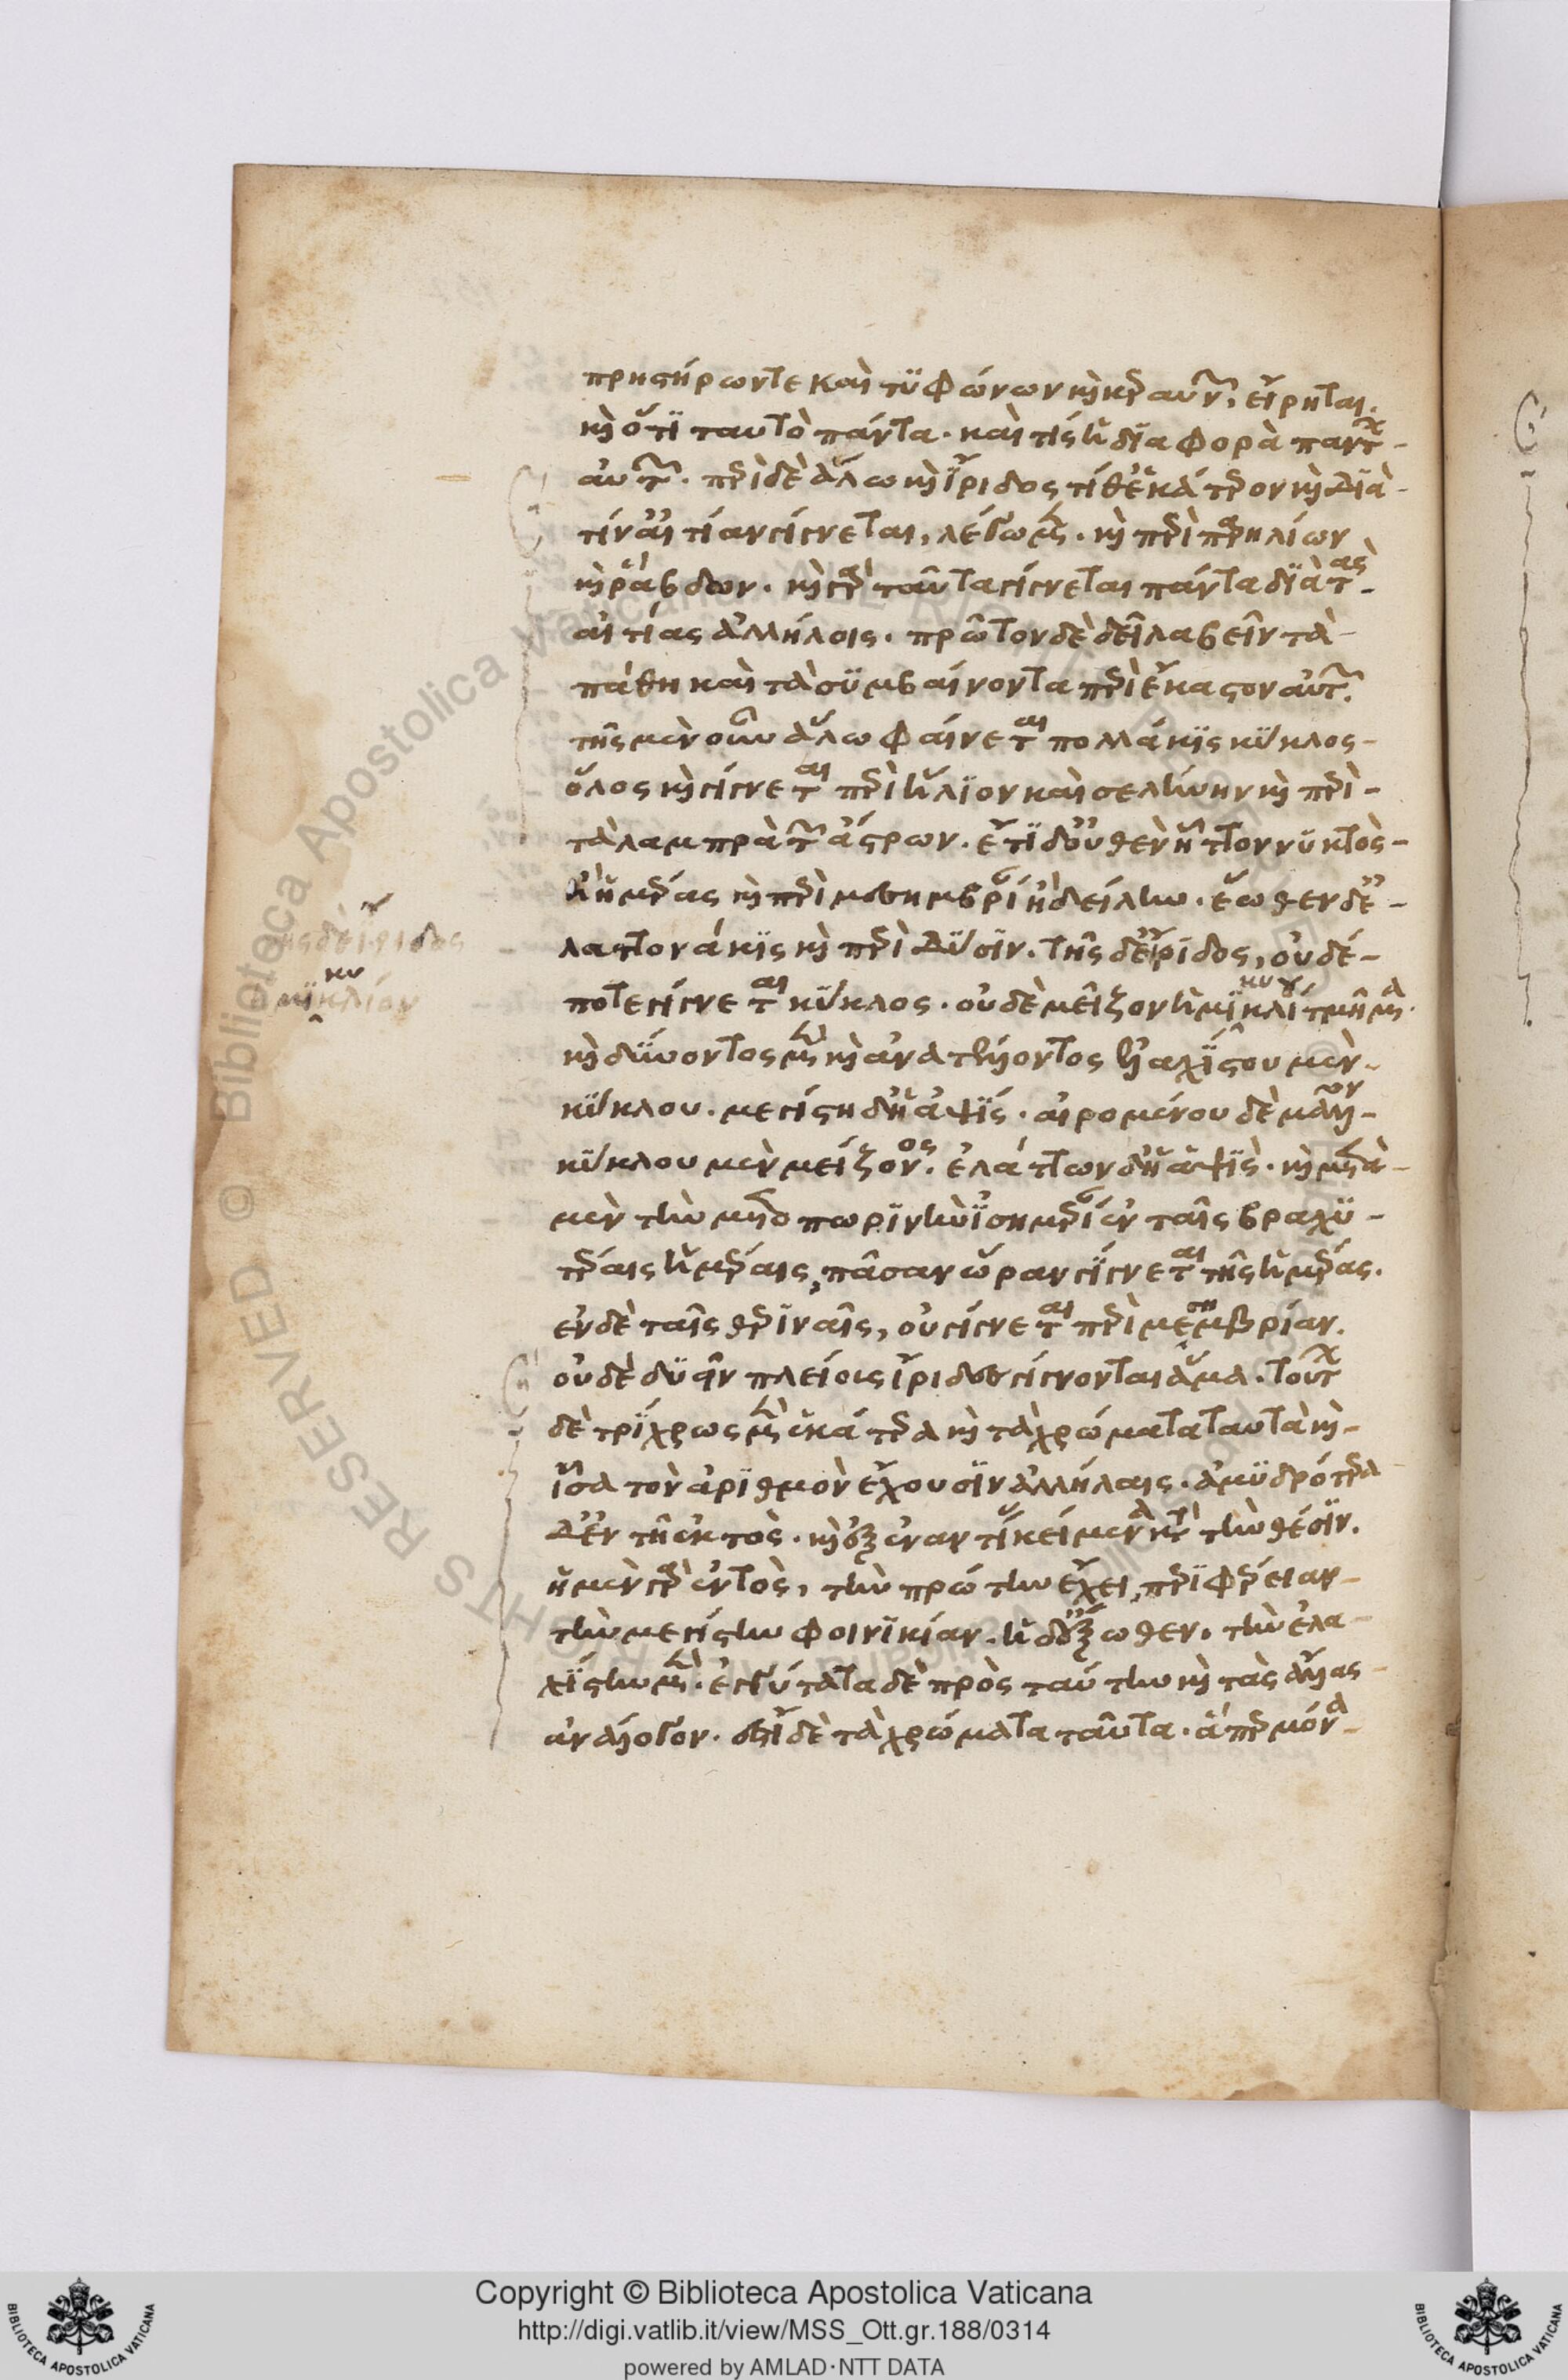 πρηστήρων τε καὶ τυφώνων καὶ κεραυνῶν, εἴρηται.
καὶ ὅτι ταυτὸ πάντα. καὶ τίς ἡ διαφορὰ πάντων
αὐτῶν. περὶ δὲ ἅλω καὶ ἴριδος τί θ' ἑκάτερον καὶ διὰ
τίν' αἰτίαν γίγνεται, λέγωμεν. καὶ περὶ παρηλίων
καὶ ῥάβδων. καὶ γὰρ ταῦτα γίγνεται πάντα διὰ τὰς
αἰτίας ἀλλήλοις. πρῶτον δὲ δεῖ λαβεῖν τὰ
πάθη καὶ τὰ συμβαίνοντα περὶ ἕκαστον αὐτῶν.
τῆς μὲν οὖν ἅλω φαίνεται πολλάκις κύκλος
ὅλος καὶ γίγνεται περὶ ἥλιον καὶ σελήνην καὶ περὶ
τὰ λαμπρὰ τῶν ἄστρων. ἔτι δ' οὐθὲν ἧττον νυκτὸς
ἢ ἡμέρας καὶ περὶ μεσημβρίαν ἢ δείλην. ἕωθεν δ'
ἐλαττονάκις καὶ περὶ δύσιν. τῆς δ' ἴριδος, οὐδέ
ποτε γίγνεται κύκλος. οὐδὲ μεῖζον ἡμικυκλίου τμῆμα.
καὶ δύνοντος μὲν καὶ ἀνατέλλοντος ἐλαχίστου μὲν
κύκλου. μεγίστη δ' ἡ ἁψίς. αἰρομένου δὲ μᾶλλον
κύκλου μὲν μείζονος. ἐλάττων δ' ἡ ἁψίς. καὶ μετὰ
μὲν τὴν μετοπωρινὴν ἰσημερίαν ἐν ταῖς βραχυ
τέραις ἡμέραις, πᾶσαν ὥραν γίγνεται τῆς ἡμέρας.
ἐν δὲ ταῖς θεριναῖς, οὐ γίγνεται περὶ μεσημβρίαν.
οὐδὲ δυοῖν πλείους ἴριδες γίγνονται ἅμα. τούτων
δὲ τρίχρως μὲν ἑκάτερα καὶ τὰ χρώματα ταυτὰ καὶ
ἴσα τὸν ἀριθμὸν ἔχουσιν ἀλλήλαις. ἀμυδρότερα
δ' ἐν τῇ ἐκτὸς. καὶ ἐξ ἐναντίας κείμενα κατὰ τὴν θέσιν.
ἡ μὲν γὰρ ἐντὸς, τὴν πρώτην ἔχει περιφέρειαν
τὴν μεγίστην φοινικίαν. ἡ δ' ἔξωθεν, τὴν ἐλα
χίστην μὲν. ἐγγύτατα δὲ πρὸς ταύτην καὶ τὰς ἄλλας
ἀνάλογον. ἐστὶ δὲ τὰ χρώματα ταῦτα. ἅπερ μόνα
τῆς δὲ ἴριδος
ἡμικυκλίου
Copyright © Biblioteca Apostolica Vaticana
http://digi.vatlib.it/view/MSS_Ott.gr.188/0314
powered by AMLAD·NTT DATA
BIBLIOTECA APOSTOLICA VATICANA
BIBLIOTECA APOSTOLICA VATICANA